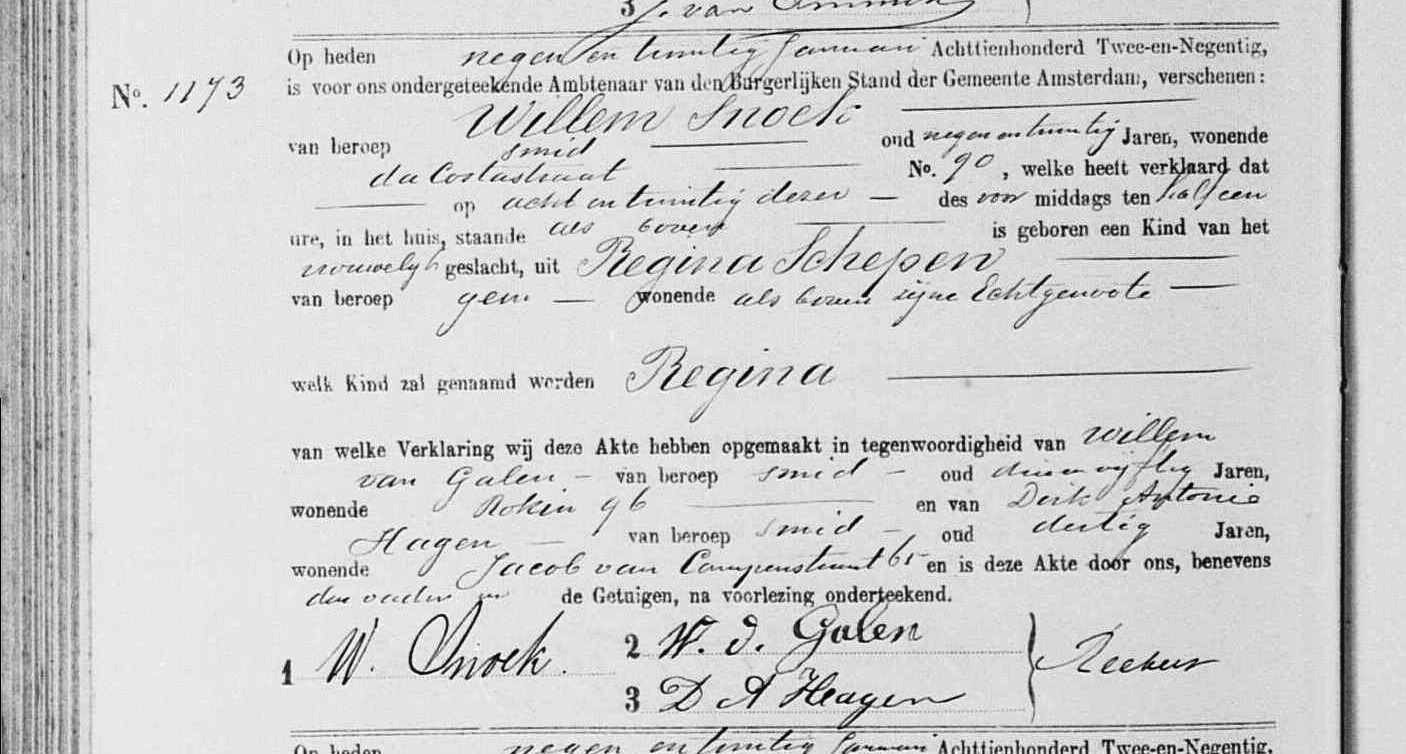 3 J. van
Op heden negen en twintig Januari Achttienhonderd Twee-en-Negentig,
No. 1173 is voor ons ondergeteekende Ambtenaar van den Burgerlijken Stand der Gemeente Amsterdam, verschenen:
Willem Snoek
van beroep smid oud negen en twintig Jaren, wonende
da Costastraat No. 90, welke heeft verklaard dat
op acht en twintig dezer des voor middags ten half een
ure, in het huis, staande als boven is geboren een Kind van het
vrouwelijk geslacht, uit Regina Schepen
van beroep geen wonende als boven zijne Echtgenoote
welk Kind zal genaamd worden Regina
van welke Verklaring wij deze Akte hebben opgemaakt in tegenwoordigheid van Willem
van Galen van beroep smid oud drie en vijftig Jaren,
wonende Rokin 96 en van Dirk Antonie
Hagen van beroep smid oud dertig Jaren,
wonende Jacob van Campenstraat 65 en is deze Akte door ons, benevens
den vader en de Getuigen, na voorlezing onderteekend.
1 W. Snoek. 2 W. v. Galen
3 D A Hagen
Op heden negen en twintig Januari Achttienhonderd Twee-en-Negentig,